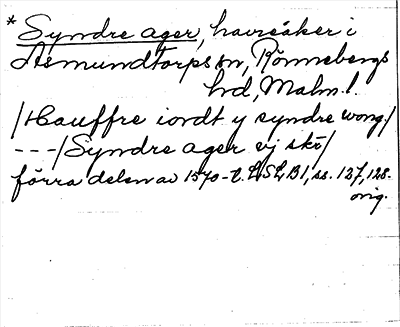 *Syndre ager, havreåker i
Asmundtorps sn, Rönnebergs
hd, Malm. l.
/Hauffre iordt y syndre wong/
---/Syndre ager ej skr/
förra delen av 1570-t. LSLB1, ss. 127, 128.
orig.